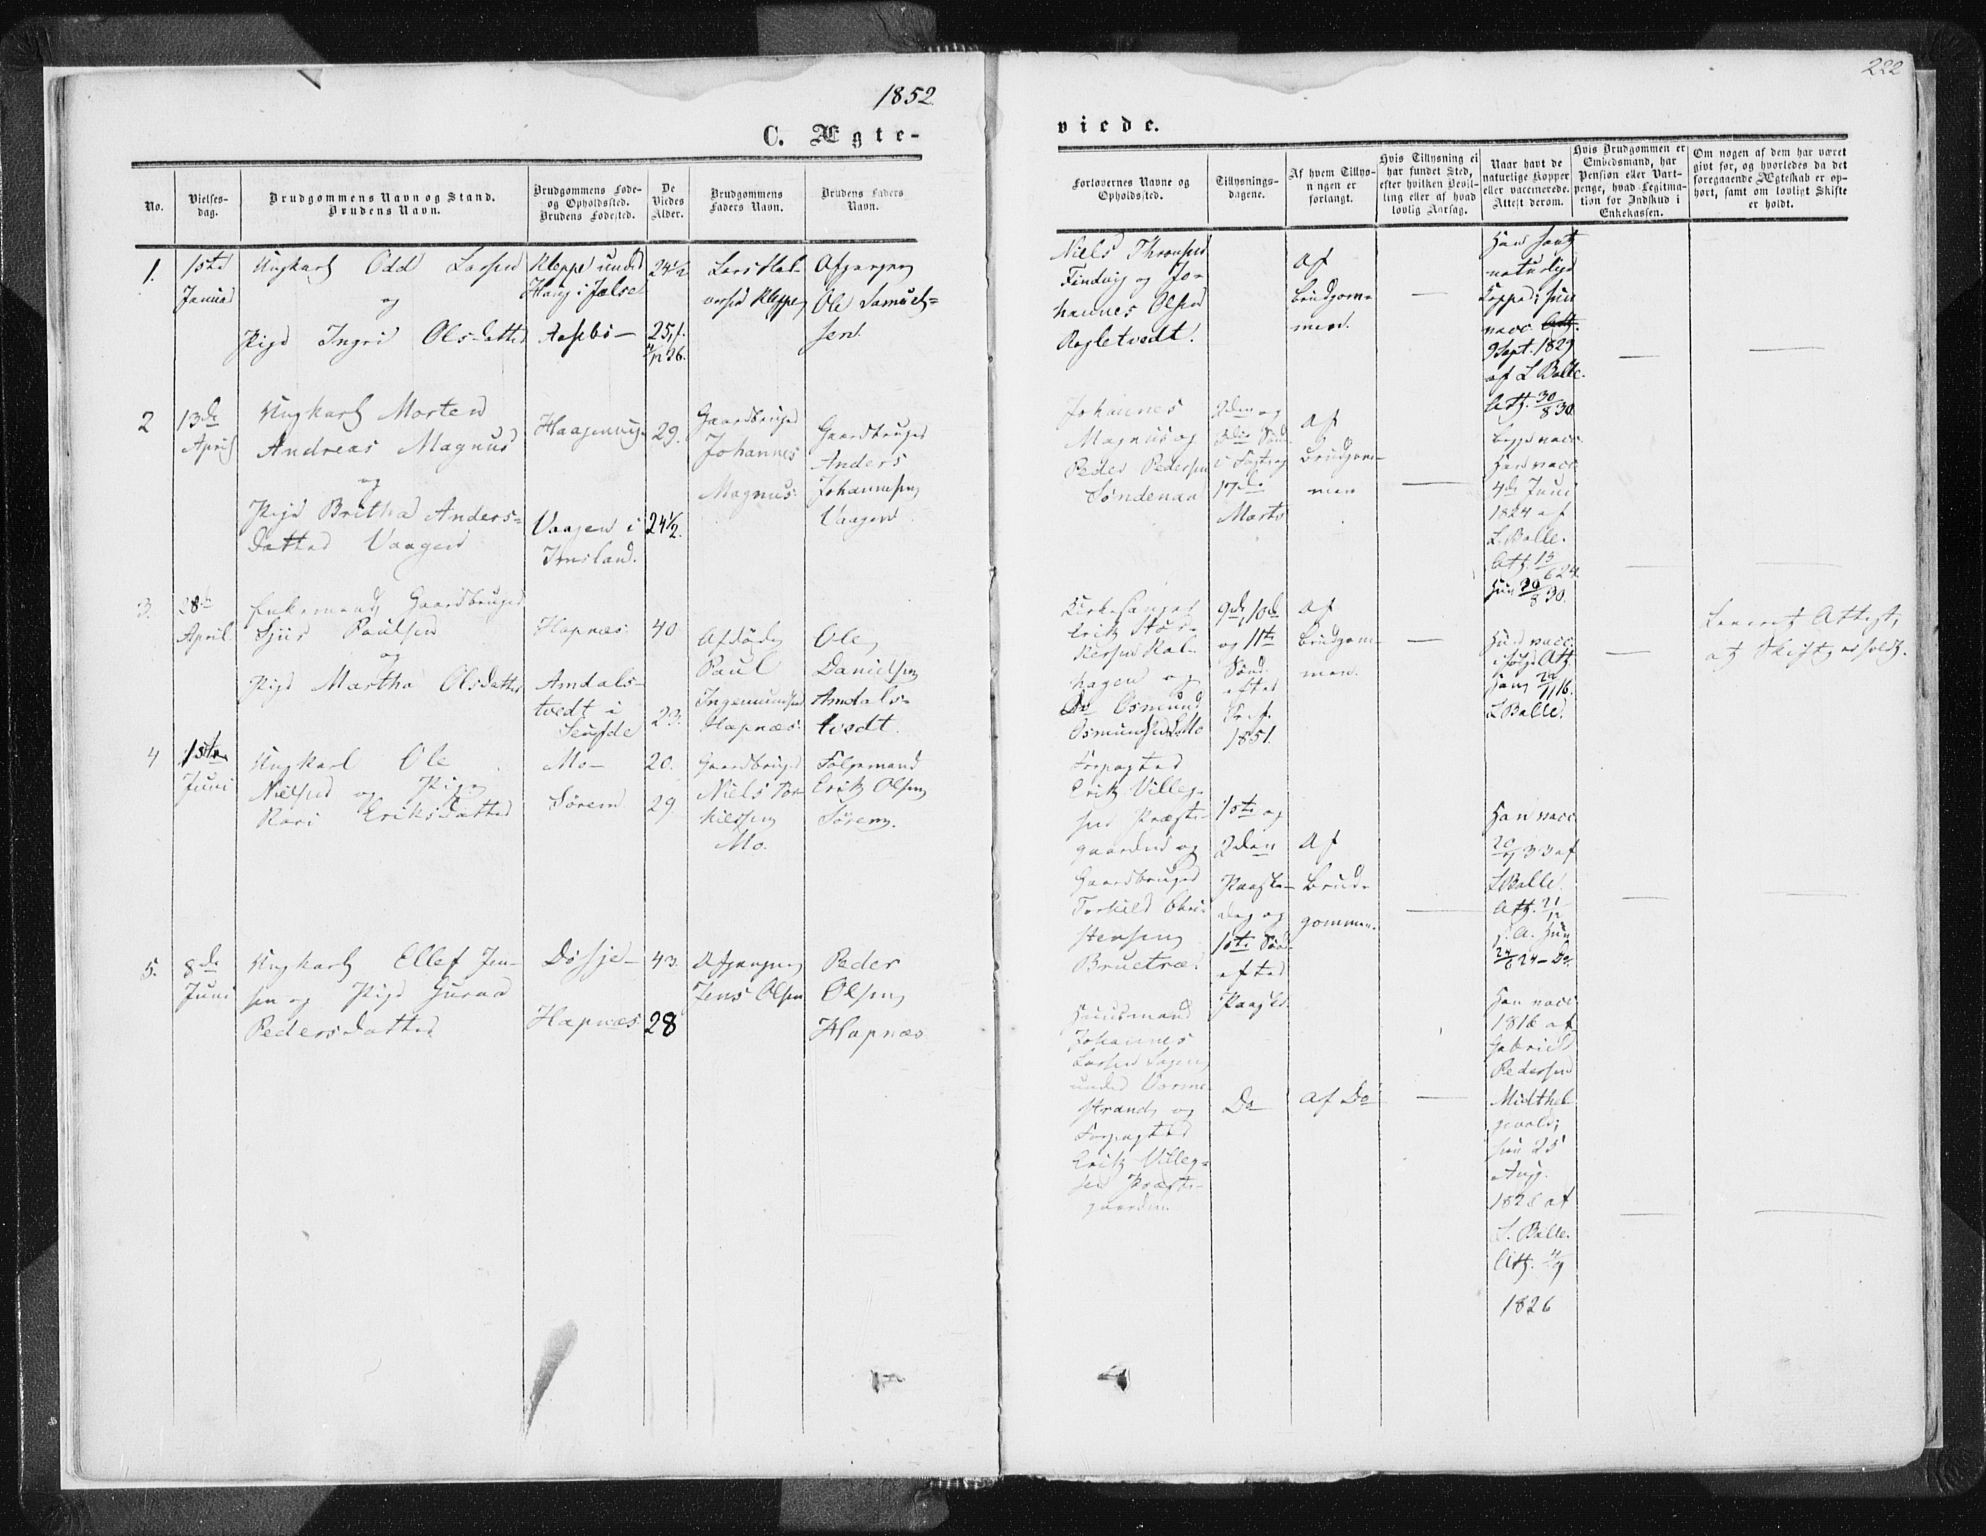 1852
222
C. Ægte-
viede.
No.
Vielses-
dag.
Brudgommens Navn og Stand.
Brudens Navn.
Brudgommens Føde-
og Opholdssted.
Brudens Fødested.
De
Viedes
Alder.
Brudgommens
Faders Navn.
Brudens Faders
Navn.
Forlovernes Navne og
Opholdssted.
Tillysnings-
dagene.
Af hvem Tillys-
ningen er
forlangt.
Hvis Tillysning ei
har fundet Sted,
efter hvilken Bevil-
ling eller af hvad
lovlig Aarsag.
Naar havt de
naturlige Kopper
eller vaccinerede.
Attest derom.
Hvis Brudgommen er
Embedsmand, har
Pension eller Vart-
penge, hvad Legitima-
tion for Indskud i
Enkekassen.
Om nogen af dem har været
gift før, og hvorledes da det
foregaaende Ægteskab er op-
hørt, samt om lovligt Skifte
er holdt.
1.
1ste
Januar
Ungkarl Odd Larsen
og
Pige Ingri Olsdatter
Kleppe under
Haug i Jelse
Aasebø
24½
25
Lars Hal-
vorsen Kleppe
Afgangne
Ole Samuel-
sen
Niels Thronsen
Findvig og Jo-
hannes Olsen
Rogletvedt.
Af
Brudgom-
men.
Han havt
naturlige
Kopper; hun
vacc. Att.
9 Sept. 1829
af L Balle.
Att. 30/8 30
2
13de
April
Ungkarl Morten
Andreas Magnus
og
Pige Britha Anders-
datter Vaagen
Haagenvig
Vaagen i
Imsland.
29.
24½.
Gaardbruger
Johannes
Magnus
Gaardbruger
Anders
Johannesen
Vaagen
Johannes
Magnus og
Peder Pedersen
Søndenaa
2den og
3die Sønd.
i Faste og
17de
Marts
Af
Brudgom-
men
Begge vacc.
Han vacc.
4de Juni
1824 af
L. Balle.
Att. 13/6 24.
Hun 30/8 30.
3.
28de
April
Enkemand Gaardbruger
Sjur Paulsen
og
Pige Martha Olsdatter
Hapnæs
Amdals-
tvedt i
40
23.
Afdøde
Paul
Ingemundsen
Hapnæs.
Ole
Danielsen
Amdals-
tvedt.
Kirkesanger
Erik
hagen og
Do Osmund
Osmundsen Mo
9de, 10de
og 11te
Sønd.
efter
Tref.
1851.
Af
Brudgom-
men.
Hun vacc.
ifølge Att.
L Balle.
Leveret Attest,
at Skifte er holdt.
4
1ste
Juni
Ungkarl Ole
Nielsen og Pige
Kari Eriksdatter
Mo
Sørem
20.
29.
Gaardbruger
Niels Tor-
kildsen
Mo.
Følgemand
Erik Olsen
Sørem.
Forpagter
Erik Villeg-
sen Præste-
gaarden og
Gaardbruger
Torkild Chri-
stensen
Bruetræ.
1ste og
2den
Paaske-
dag og
1ste Sønd.
efter
Paaske.
Af
Brud-
gommen.
Han vacc.
af
L Balle.
Att. 21/12
s. A. Hun
24/6 24 Do.
5.
8de
Juni
Ungkarl Ellef Jen-
sen og Pige Gurna
Pedersdatter
Døsje
Hapnæs
43.
28
Afgangne
Jens Olsen
Peder
Olsen
Hapnæs
Huusmand
Johannes
Larsen
under Vorme-
strand og
Forpagter
Erik Villeg-
sen Præste-
gaarden.
Do
Af Do
Han vacc.
1816 af
Gabriel
Pedersen
Midthel
hun 25
Aug.
1826 af
L. Balle.
Att. 4/9
1826